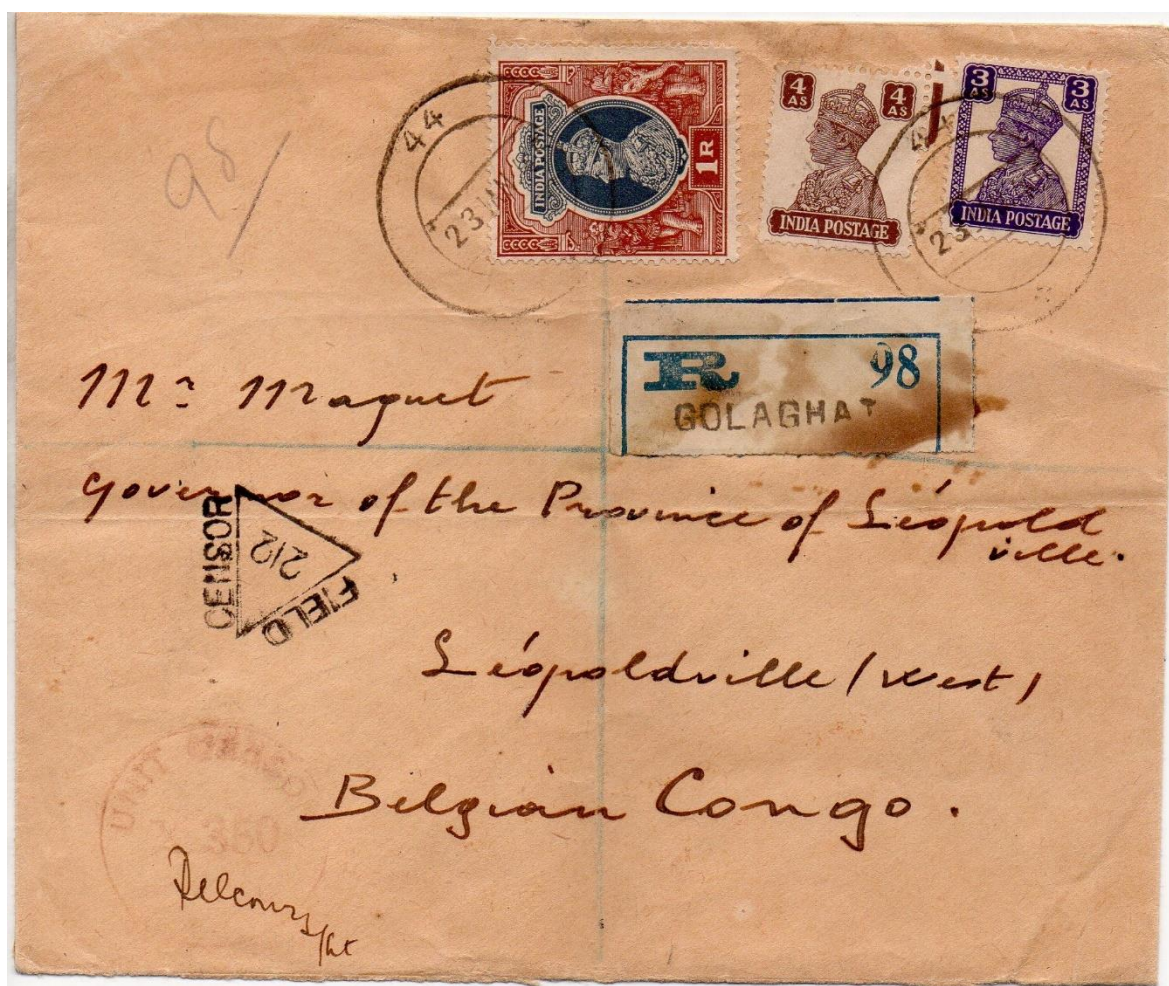 98/
44
23 JAN
INDIA POSTAGE
1 R
4 AS 4 AS
INDIA POSTAGE
3 AS 3 AS
INDIA POSTAGE
44
23
R 98
GOLAGHAT
Mr Maquet
Governor of the Province of Léopold
ville.
CENSOR
212
FIELD
Léopoldville (West)
Belgian Congo.
UNIT CENSOR
350
Delcourt/Lt